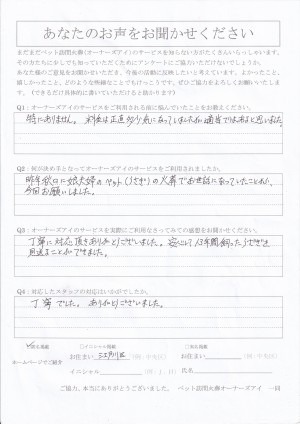 あなたのお声をお聞かせください
まだまだペット訪問火葬(オーナーズアイ)のサービスを知らない方がたくさんいらっしゃいます。
その方たちに少しでも知っていただくためにアンケートにご協力いただけないでしょうか。
あなた様のご意見をお聞かせいただき、今後の活動に反映したいと考えています。よかったこと、
嬉しかったこと、どのような些細なことでもけっこうです。ぜひご協力をよろしくお願いいたしま
す。(できるだけ具体的に書いていただけると助かります)
Q1:オーナーズアイのサービスをご利用される前に悩んでいたことをお教えください。
特にありません。料金は正直多少気になっていましたが適当ではあると思いました。
Q2:何が決め手となってオーナーズアイのサービスをご利用されましたか。
昨年秋口に娘夫婦のペット(うさぎ)の火葬でお世話になっていたことから、
今回お願いしました。
Q3:オーナーズアイのサービスを実際にご利用なさってみての感想をお聞かせください。
丁寧に対応頂きありがとうございました。安心して13年間飼ったうさぎを
見送ることができました。
Q4:対応したスタッフの対応はいかがでしたか。
丁寧でした。ありがとうございました。
匿名掲載 □イニシャル掲載 □実名掲載
ホームページでご紹介
お住まい 江戸川区 (例:中央区) お住まい (例:中央区)
イニシャル (例:I.H) 氏名
ご協力、本当にありがとうございました。 ペット訪問火葬オーナーズアイ 一同